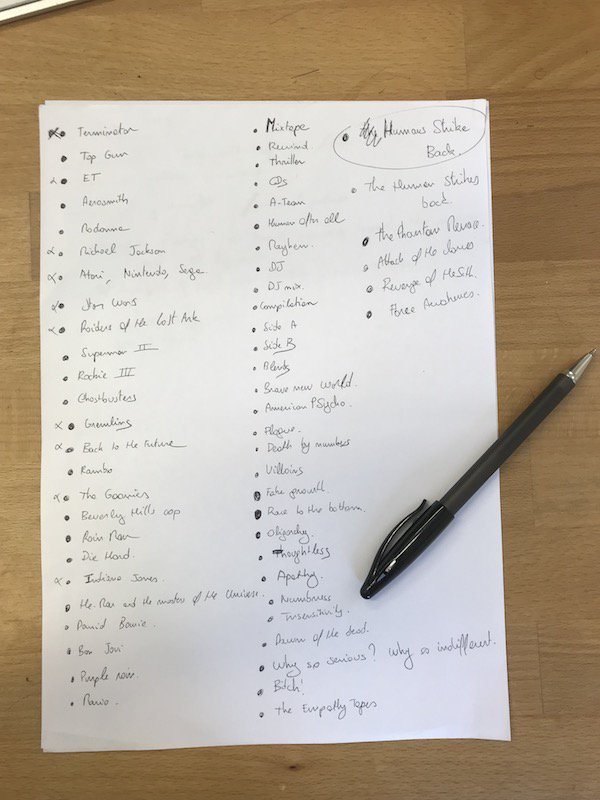 Terminator
Top Gun
ET
Aerosmith
Madonna
Michael Jackson
Atari, Nintendo, Sega
Star Wars
Raiders of the Lost Ark
Superman II
Rockie III
Ghostbusters
Gremlins
Back to the Future
Rambo
The Goonies
Beverly Hills cop
Rain Man
Die Hard.
Indiana Jones.
He-Man and the masters of the Universe.
David Bowie.
Bon Jovi
Purple rain.
Mario.
Mixtape
Rewind
Thriller
CDs
A-Team
Human after all
Mayhem.
DJ
DJ mix.
Compilation
Side A
Side B
Blends
Brave new world.
American PSycho.
Plague.
Death by numbers
Villains
Fake growth.
Race to the bottom.
Oligarchy.
Thoughtless
Apathy.
Numbness
Insensitivity.
Dawn of the dead.
Why so serious? Why so indifferent.
Bitch!
The Empathy Tapes
Humans Strike
Back.
The Human Strikes
back.
The Phantom Menace.
Attack of the clones
Revenge of the Sith.
Force Awakens.